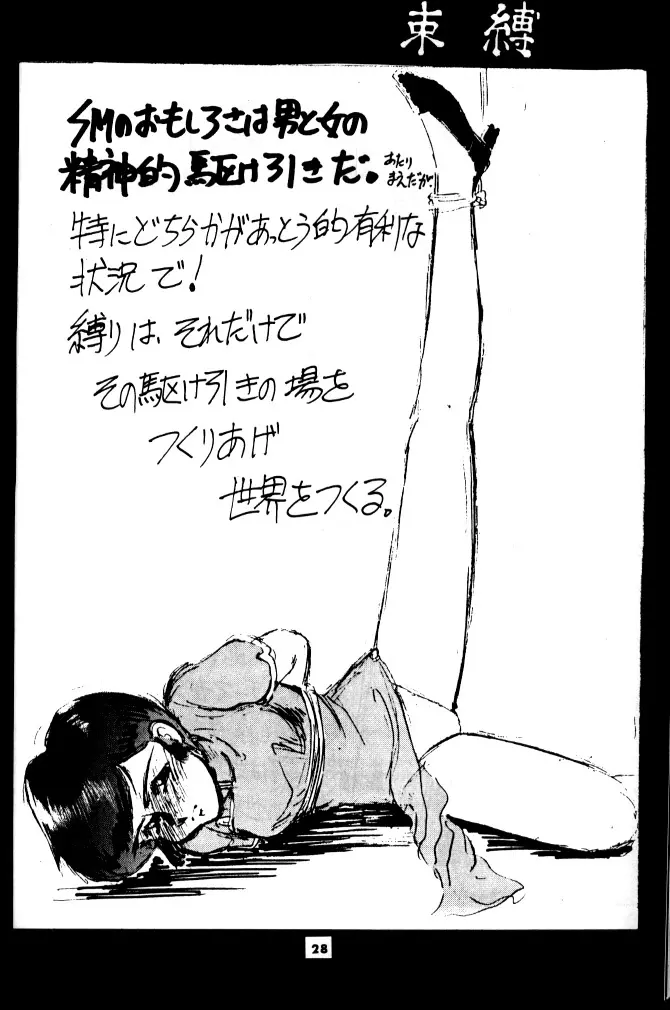 束縛
SMのおもしろさは男と女の
精神的駆け引きだ。おたり
まえだが
特にどちらかがあっとう的有利な
状況で!
縛りは、それだけで
その駆け引きの場を
つくりあげ
世界をつくる。
28